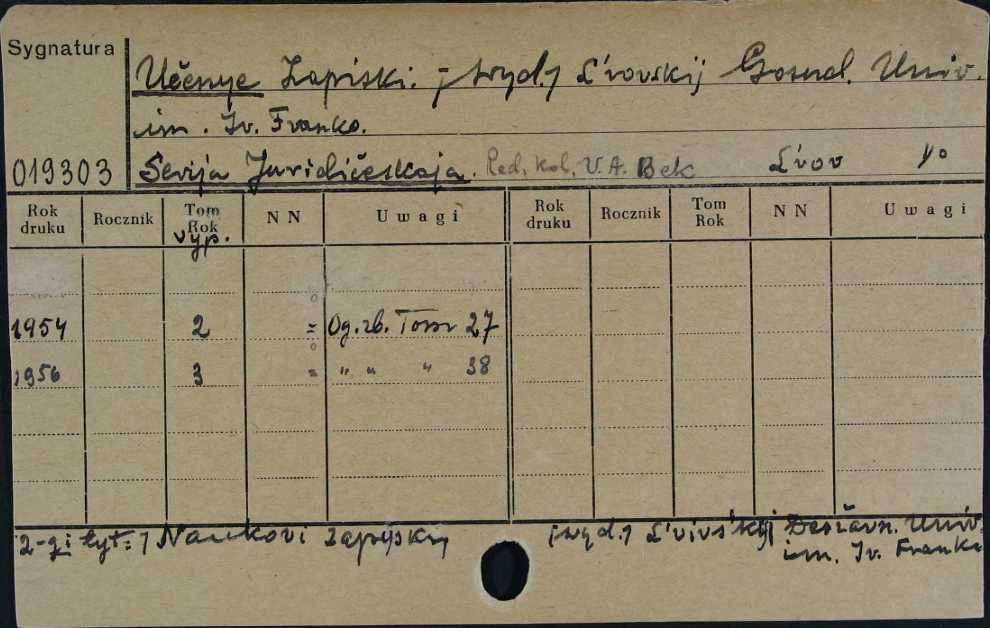 Sygnatura
Učenye Zapiski. [wyd.] L'vovskij Gosud. Univ.
im. Iv. Franko.
019303 Serija Juridičeskaja. Red. kol. V. A. Bek L'vov
Rok druku Rocznik Tom Rok NN Uwagi Rok druku Rocznik Tom Rok NN Uwagi
vyp.
1954 2 = Og. zb. Tom 27
1956 3 = " " " 38
2-gi tyt: Naukovi zapysky [wyd.] L'vivs'kyj Deržavn. Univ.
im. Iv. Franka